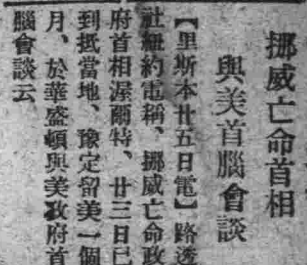 挪威亡命首相
與美首腦會談
【里斯本廿五日電】路透
社紐約電稱、挪威亡命政
府首相渥爾特、廿三日已
到抵當地、豫定留美一個
月、於華盛頓與美政府首
腦會談云